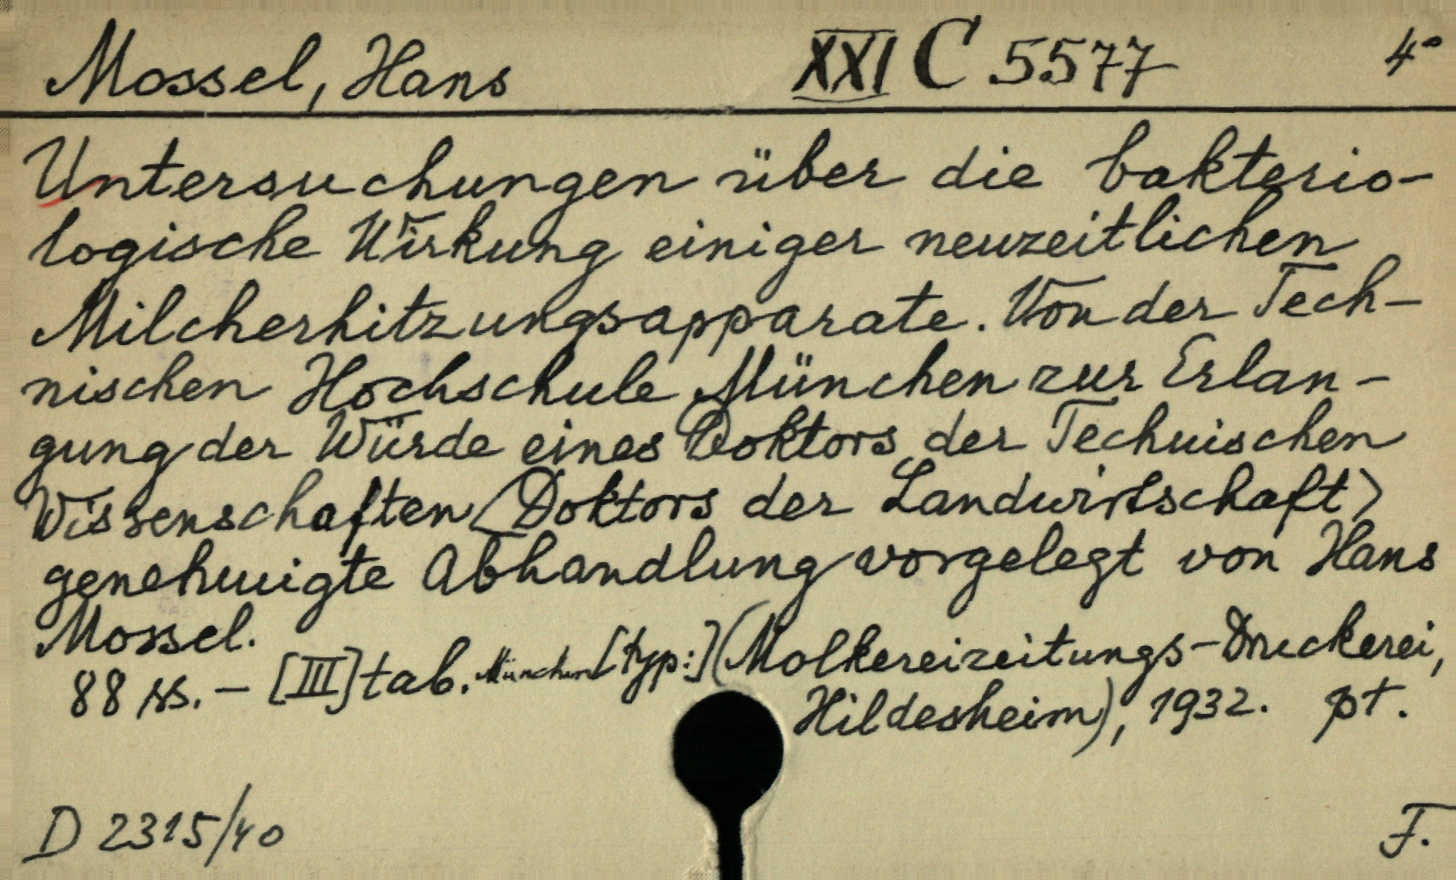 Mossel, Hans XXI C 5577 4°
Untersuchungen über die bakterio-
logische Wirkung einiger neuzeitlichen
Milcherhitzungsapparate. Von der Tech-
nischen Hochschule München zur Erlan-
gung der Würde eines Doktors der Technischen
Wissenschaften <Doktors der Landwirtschaft>
genehmigte Abhandlung vorgelegt von Hans
Mossel.
88 ss. - [III] tab. München [typ:] (Molkereizeitungs-Druckerei,
Hildesheim), 1932. pt.
D 2315/40 F.